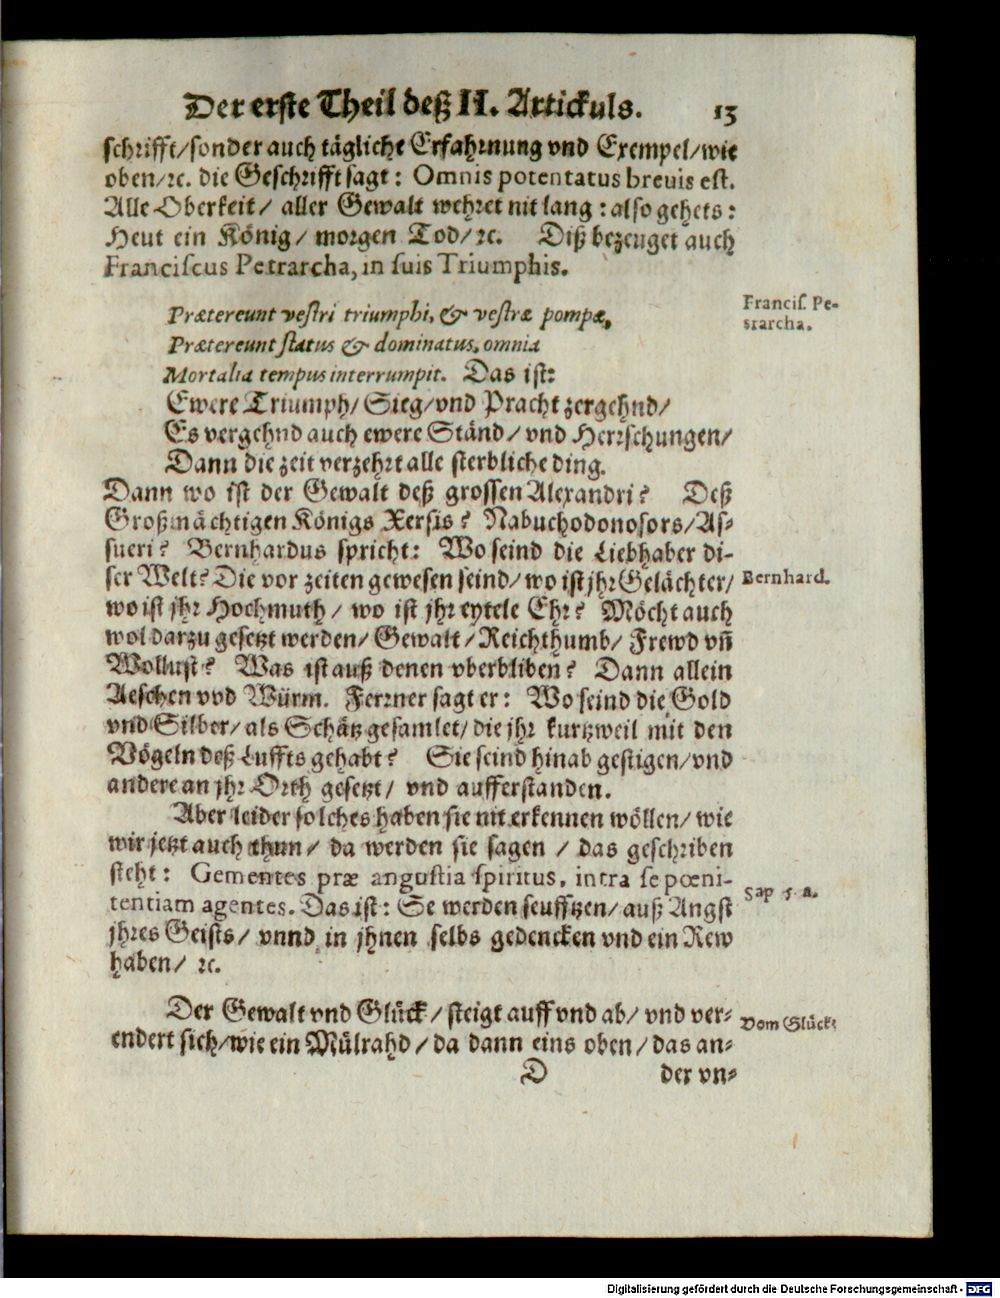 Der erste Theil deß II. Artickuls. 13
schrifft/sonder auch tägliche Erfahrnung vnd Exempel/wie
oben/ꝛc. die Geschrifft sagt: Omnis potentatus breuis est.
Alle Oberkeit/ aller Gewalt wehret nit lang: also gehets:
Heut ein König/ morgen Tod/ꝛc. Diß bezeuget auch
Franciscus Petrarcha, in suis Triumphis.
Francis. Pe-
trarcha.
Prætereunt vestri triumphi, & vestræ pompæ,
Prætereunt status & dominatus, omnia
Mortalia tempus interrumpit. Das ist:
Ewere Triumph/ Sieg/vnd Pracht zergehnd/
Es vergehnd auch ewere Ständ/ vnd Herrschungen/
Dann die zeit verzehrt alle sterbliche ding.
Dann wo ist der Gewalt deß grossen Alexandri? Deß
Großmächtigen Königs Xersis? Nabuchodonosors/As-
sueri? Bernhardus spricht: Wo seind die Liebhaber di-
ser Welt? Die vor zeiten gewesen seind/ wo ist jhr Gelächter/
Bernhard.
wo ist jhr Hochmuth/ wo ist jhr eytele Ehr? Möcht auch
wol darzu gesetzt werden/ Gewalt/ Reichthumb/ Frewd vñ
Wollust? Was ist auß denen vberbliben? Dann allein
Aeschen vvd Würm. Ferrner sagt er: Wo seind die Gold
vnd Silber/ als Schätz gesamlet/ die jhr kurtzweil mit den
Vögeln deß Luffts gehabt? Sie seind hinab gestigen/vnd
andere an jhr Orth gesetzt/ vnd aufferstanden.
Aber leider solches haben sie nit erkennen wöllen/ wie
wir jetzt auch thun/ da werden sie sagen / das geschriben
steht: Gementes præ angustia spiritus, intra se pœni-
Sap 5. a.
tentiam agentes. Das ist: Se werden seufftzen/ auß Angst
jhres Geists/ vnnd in jhnen selbs gedencken vnd ein Rew
haben/ ꝛc.
Der Gewalt vnd Glück/ steigt auff vnd ab/ vnd ver-
Vom Glück.
endert sich/wie ein Mülrahd/ da dann eins oben/ das an-
D der vn-
Digitalisierung gefördert durch die Deutsche Forschungsgemeinschaft - DFG